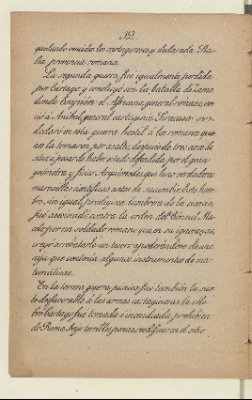 quedando vencidos los cartagineses y declarada Sici-
lia provincia romana.
La segunda guerra fue igualmente perdida
por Cartago, y concluyó con la batalla de Zama
donde Escipion el Africano, general romano ven-
ció á Anibal, general cartagines. Siracusa se
declaró en esta guerra hostil á los romanos que
la tomaron por asalto, despues de tres años de
sitio, a pesar de haber estado defendida por el gran
geómetra y físico Arquímedes que hizo verdaderas
maravillas científicas antes de sucumbir. Este hom-
bre sin igual, prodigiosa lumbrera de la ciencia,
fué asesinado contra la orden del Consul Mar-
celo por un soldado romano que en su ignorancia,
creyó arrebatarle un tesoro apoderandose de una
caja que contenía algunos instrumentos de ma-
temáticas.
En la tercera guerra púnica fue tambien la suer-
te desfavorable á las armas cartaginesas, la céle-
bre Cartago fué tomada é incendiada, prohibien-
do Roma, bajo terribles penas, reedificar en el sitio